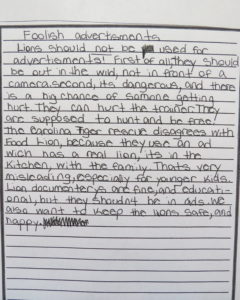 Foolish advertisments
Lions should not be used for
advertisments! First of all, They should
be out in the wild, not in front of a
camera. second, its dangerous, and there
is a big chance of somone getting
hurt. They can hurt the trainer. They
are supposed to hunt and be free!
The Carolina Tiger rescue disagrees with
Food Lion, because they use an ad
wich has a real lion, its in the
Kitchen, with the family. Thats very
misleading, especially for younger kids.
Lion documenterys are fine, and educati-
onal, but they shouldnt be in ads. We
also want to keep the lions safe, and
happy.